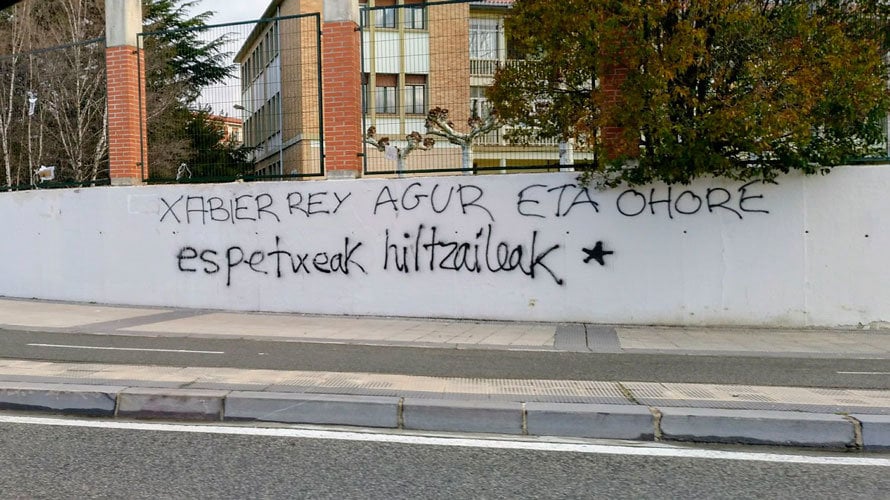 XABIER REY AGUR ETA OHORE
espetxeak hiltzaileak ★